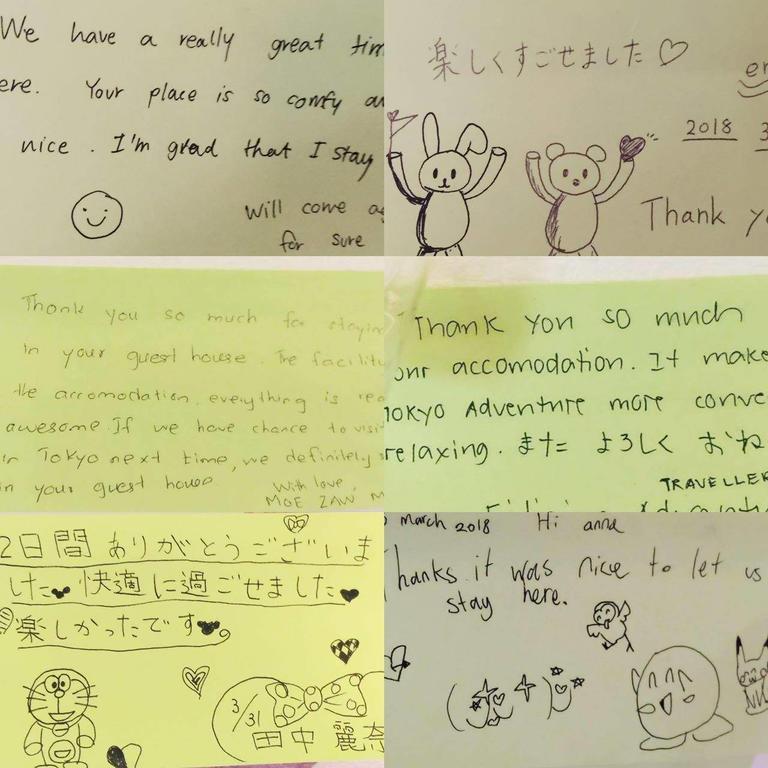 We have a really great tim
ere. Your place is so comfy an
nice. I'm grad that I stay
Will come ag
for sure
楽しくすごせました♡
en
2018 3
Thank yo
Thank you so much for stayin
in your guest house. The facility
the accomodation, everything is rea
awesome. If we have chance to visit
in Tokyo next time, we definitely s
in your guest house
With love,
MOE ZAW M
Thank you so much
our accomodation. It make
TOKYO Adventure more conve
relaxing. また よろしく おね
TRAVELLER
2日間 ありがとうございま
した♥ 快適に過ごせました♥
楽しかったです
3/31
田中 麗奈
March 2018 Hi anna
hanks it was nice to let us
stay here.